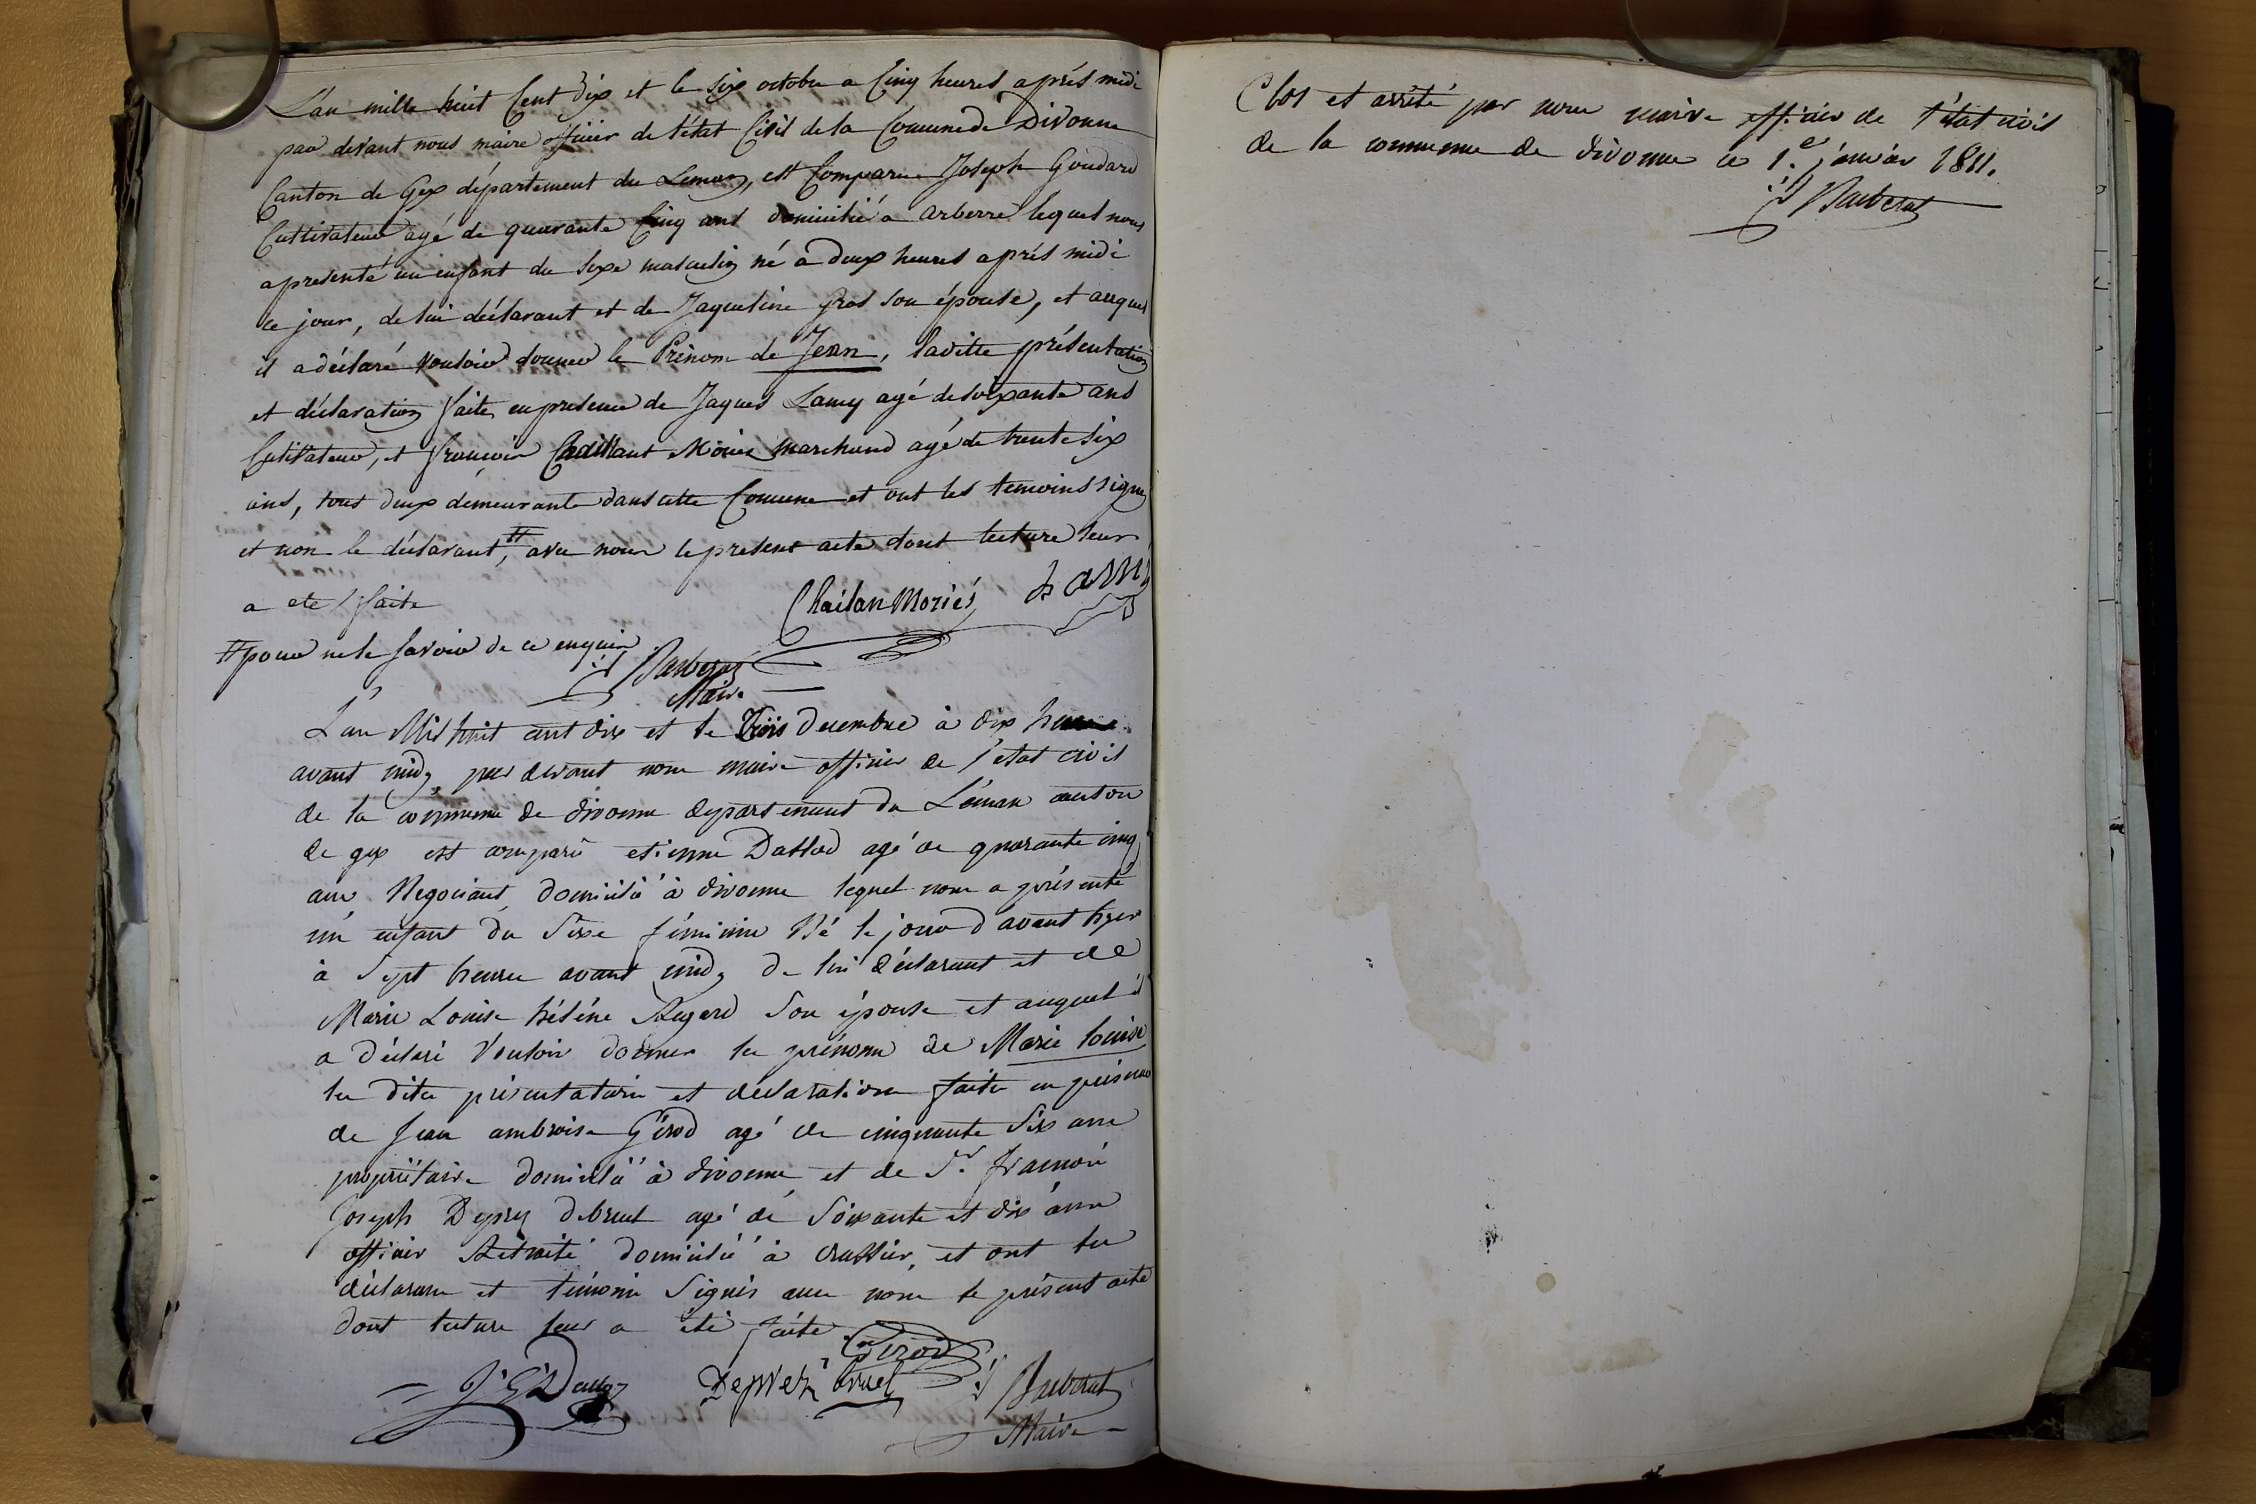 L'an mille huit Cent dix et le six octobre a Cinq heures après midi
par devant nous maire officier de l'état Civil de la Comune de Divonne
Canton de Gex département du Leman, est Comparu Joseph Goudard
Cultivateur agé de quarante Cinq ans domicilié a arberre lequel nous
a presenté un enfant du sexe masculin né a deux heures après midi
ce jour, de lui déclarant et de Jaqueline gros son épouse, et auquel
il a déclaré vouloir donner le Prénom de Jean, laditte présentation
et déclaration faite en presence de Jaques Lamy agé de soixante ans
Cultivateur, et françois Chaillant Moriés marchand agé de trente six
ans, tous deux demeurants dans cette Comune et ont les temoins signé
et non le déclarant, # avec nous le present acte dont lecture leur
a ete faite
Chailan Moriés Lami
# pour ne le savoir de ce enquis
Barberat
Maire
L'an Mil huit cent dix et le trois decembre à dix heures
avant midy, par devant nous maire officier de l'etat civil
de la commune de divonne departement du Léman canton
de gex est comparu etienne Dallod agé de quarante cinq
ans Negociant, domicilié à divonne lequel nous a présenté
un enfant du Sexe féminin Né le jour d'avant hyer
à Sept heures avant midy de lui déclarant et de
Marie Louise héléne Regard Son épouse et auquel il
a déclaré Vouloir donner les prénoms de Marie louise
les dites présentation et declaration faites en présence
de Jean ambroise Gérod agé de cinquante Six ans
propriétaire domicilié à divonne et de Sr. françois
Joseph Deprez debruet agé de Soixante et dix ans
officier Retraité domicilié à Crassier, et ont les
déclarant et témoins Signés avec nous le présent acte
dont lecture leur a été faite
Girod
Deprez bruel Barberat
Maire
Clos et arrêté par nous maire officier de l'état civil
de la commune de divonne ce 1.er janvier 1811.
Barberat